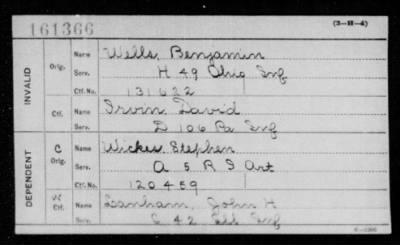 161366 (3-H-4)
INVALID Orig. Name Wells, Benjamin
Serv. H 49 Ohio Inf
Ctf. No. 131622
Ctf. Name Irvin David
Serv. D 106 Pa Inf
DEPENDENT C Orig. Name Wickes Stephen
Serv. A 5 R I Art
Ctf. No. 120459
Ctf. Name Lanham, John H
Serv. C 42 Ill Inf